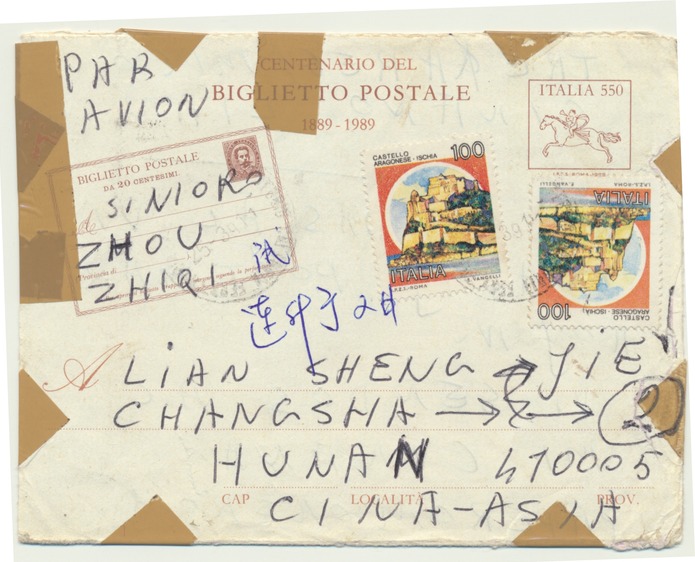 PAR
AVION
CENTENARIO DEL
BIGLIETTO POSTALE
1889-1989
ITALIA 550
BIGLIETTO POSTALE
DA 20 CENTESIMI.
de
SINIORO
ZHOU
ZHIQI
CASTELLO
ARAGONESE - ISCHIA
100
ITALIA
I.P.Z.S. - ROMA
E. VANGELLI
CASTELLO
ARAGONESE - ISCHIA
100
ITALIA
I.P.Z.S. - ROMA
E. VANGELLI
A LIAN SHENG JIE
CHANGSHA → → 2
HUNAN 410005
CAP LOCALITÀ PROV.
CINA-ASIA